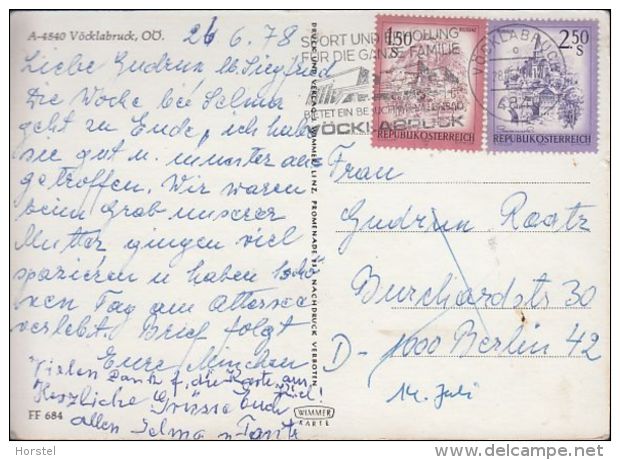 A-4840 Vöcklabruck, OÖ.
26 6. 78
Liebe Gudrun Siegfried
Die Woche bei Selma
geht zu Ende, ich habe
sie gut u. munter an
getroffen. Wir waren
beim Grab unserer
Mutter gingen viel
spazieren u haben 1 schö
nen Tag am Attersee
verlebt. Brief folgt
Eure Minchen
Vielen Dank f. die Karte, aus
Herzliche Grüsse Euch
allen Selma u. Tante
FF 684
DRUCK UND VERLAG WIMMER LINZ, PROMENADE 23, NACHDRUCK VERBOTEN
WIMMER
KARTE
SPORT UND ERHOLUNG
FÜR DIE GANZE FAMILIE
BIETET EIN BESUCH
VÖCKLABRUCK
1.50
S
REPUBLIK ÖSTERREICH
2.50
S
REPUBLIK ÖSTERREICH
VÖCKLABRUCK
4840
Frau
Gudrun Raatz
Burchardstr 30
D - 1000 Berlin 42
14. Juli
Horstel
www.delcampe.net